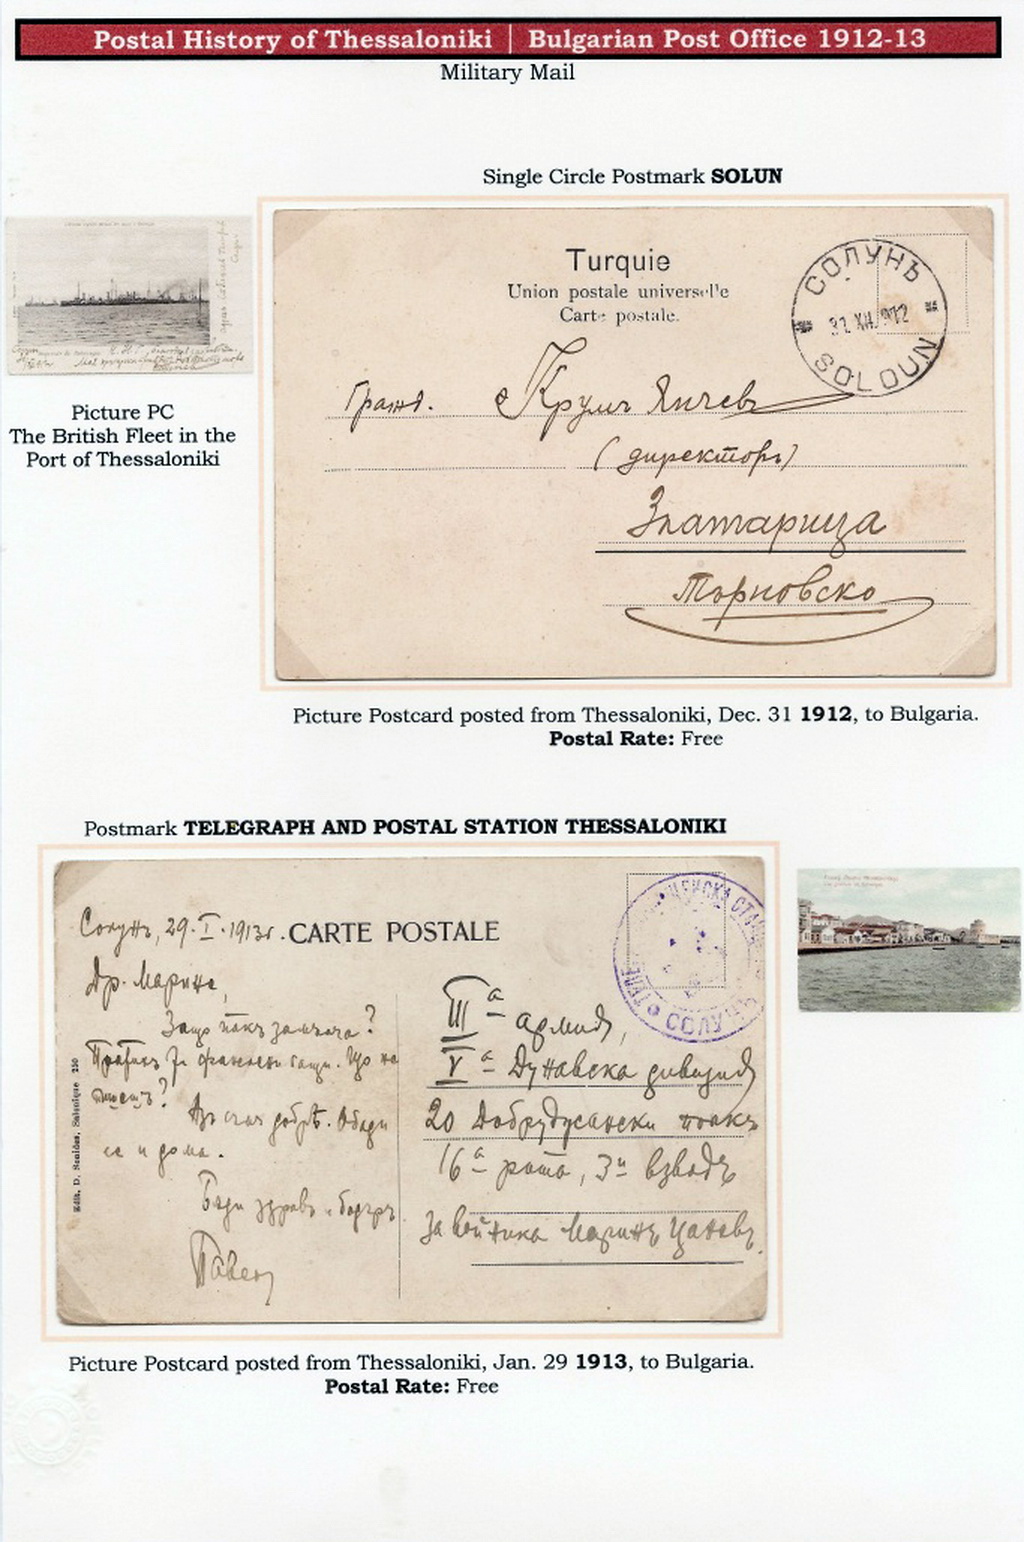 Postal History of Thessaloniki | Bulgarian Post Office 1912-13
Military Mail
Single Circle Postmark SOLUN
Turquie
Union postale universelle
Carte postale.
СОЛУНЪ
31 XII 912
SOLOUN
Гражд. Крумъ Янчевъ
(директоръ)
Златарица
Търновско
Picture PC
The British Fleet in the
Port of Thessaloniki
Picture Postcard posted from Thessaloniki, Dec. 31 1912, to Bulgaria.
Postal Rate: Free
Postmark TELEGRAPH AND POSTAL STATION THESSALONIKI
Солунъ, 29.I.1913г. CARTE POSTALE
Др. Марине,
Защо пакъ замлъча?
фланелени гащи. Що не
пишешъ?
Азъ съмъ добрѣ. Обади
се и дома.
Бъди здравъ и бодъръ
Павелъ
Edit. D. Semidas, Salonique 250
СОЛУНЪ
IIIа армия,
Vа Дунавска дивизия
20 Добруджански полкъ
16а рота, 3и взводъ
За войника Маринъ Цановъ.
Picture Postcard posted from Thessaloniki, Jan. 29 1913, to Bulgaria.
Postal Rate: Free